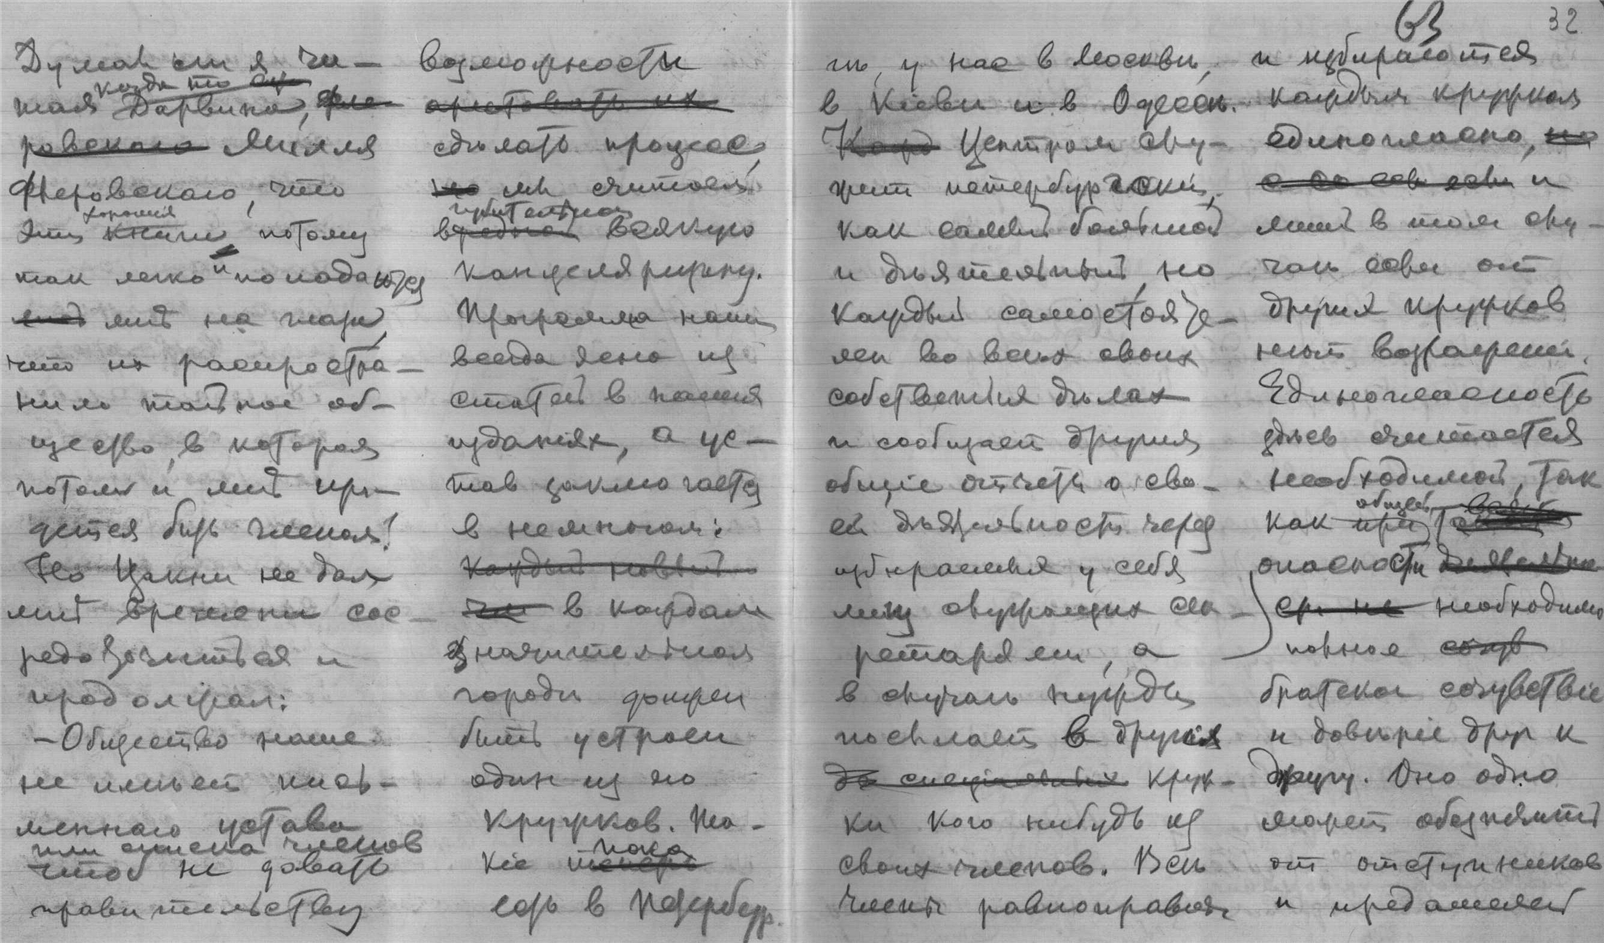 Думал ли я чи-
когда то
тая Дарвина,
ровского Милля
Флеровского, что
хорошия
эти книги потому
так легко и попадаются
мнѣ на глаза,
что их распростра-
нило тайное об-
щество, в котором
потом и мнѣ при-
дется быть членом!
Но Цакни не дал
мнѣ времени сос-
редоточиться и
продолжал:
– Общество наше
не имѣет пись-
меннаго устава
или списка членов
чтоб не давать
правительству
возможности
арестовать их
сдѣлать процесс,
но мы считаем
губительной
вредной всякую
канцелярщину.
Программа наша
всегда ясна из
статей в наших
изданіях, а ус-
тав заключается
в немногом:
Каждый новый
в каждом
значительном
городѣ должен
быть устроен
один из его
кружков. Та-
пока
кіе теперь
есть в Петербур-
63
32
гѣ, у нас в Москвѣ,
в Кіевѣ и в Одессѣ.
Центром слу-
жит петербургскій,
как самый большой
и дѣятельный, но
каждый самостояте-
лен во всѣх своих
собственных дѣлах
и сообщает другим
общіе отчеты о сво-
ей дѣятельности через
избираемых у себя
лиц служащих се-
кретарями, а
в случаѣ нужды
посылает в другія
круж-
ки кого нибудь из
своих членов. Всѣ
члены равноправны
и избираются
каждым кружком
единогласно, но
и
лишь в том слу-
чаѣ если от
других кружков
нѣт возраженій.
Единогласность
здѣсь считается
необходимой, так
общей
как при
опасности
необходимо
полное
братское сочувствіе
и довѣріе друг к
другу. Оно одно
может обезпечить
от отступников
и предателей